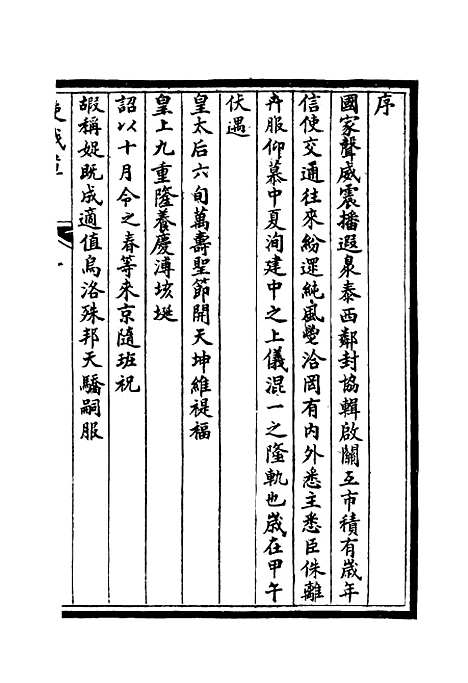 序
國家聲威震播遐泉泰西鄰封協輯啟關互市積有歲年
信使交通往來紛遝純風疊洽罔有內外悉主悉臣侏離
卉服仰慕中夏洵建中之上儀混一之隆軌也歲在甲午
伏遇
皇太后六旬萬壽聖節開天坤維禔福
皇上九重隆養慶溥垓埏
詔以十月令之春等來京隨班祝
嘏稱娖既成適值烏洛殊邦天驕嗣服
使俄草
一